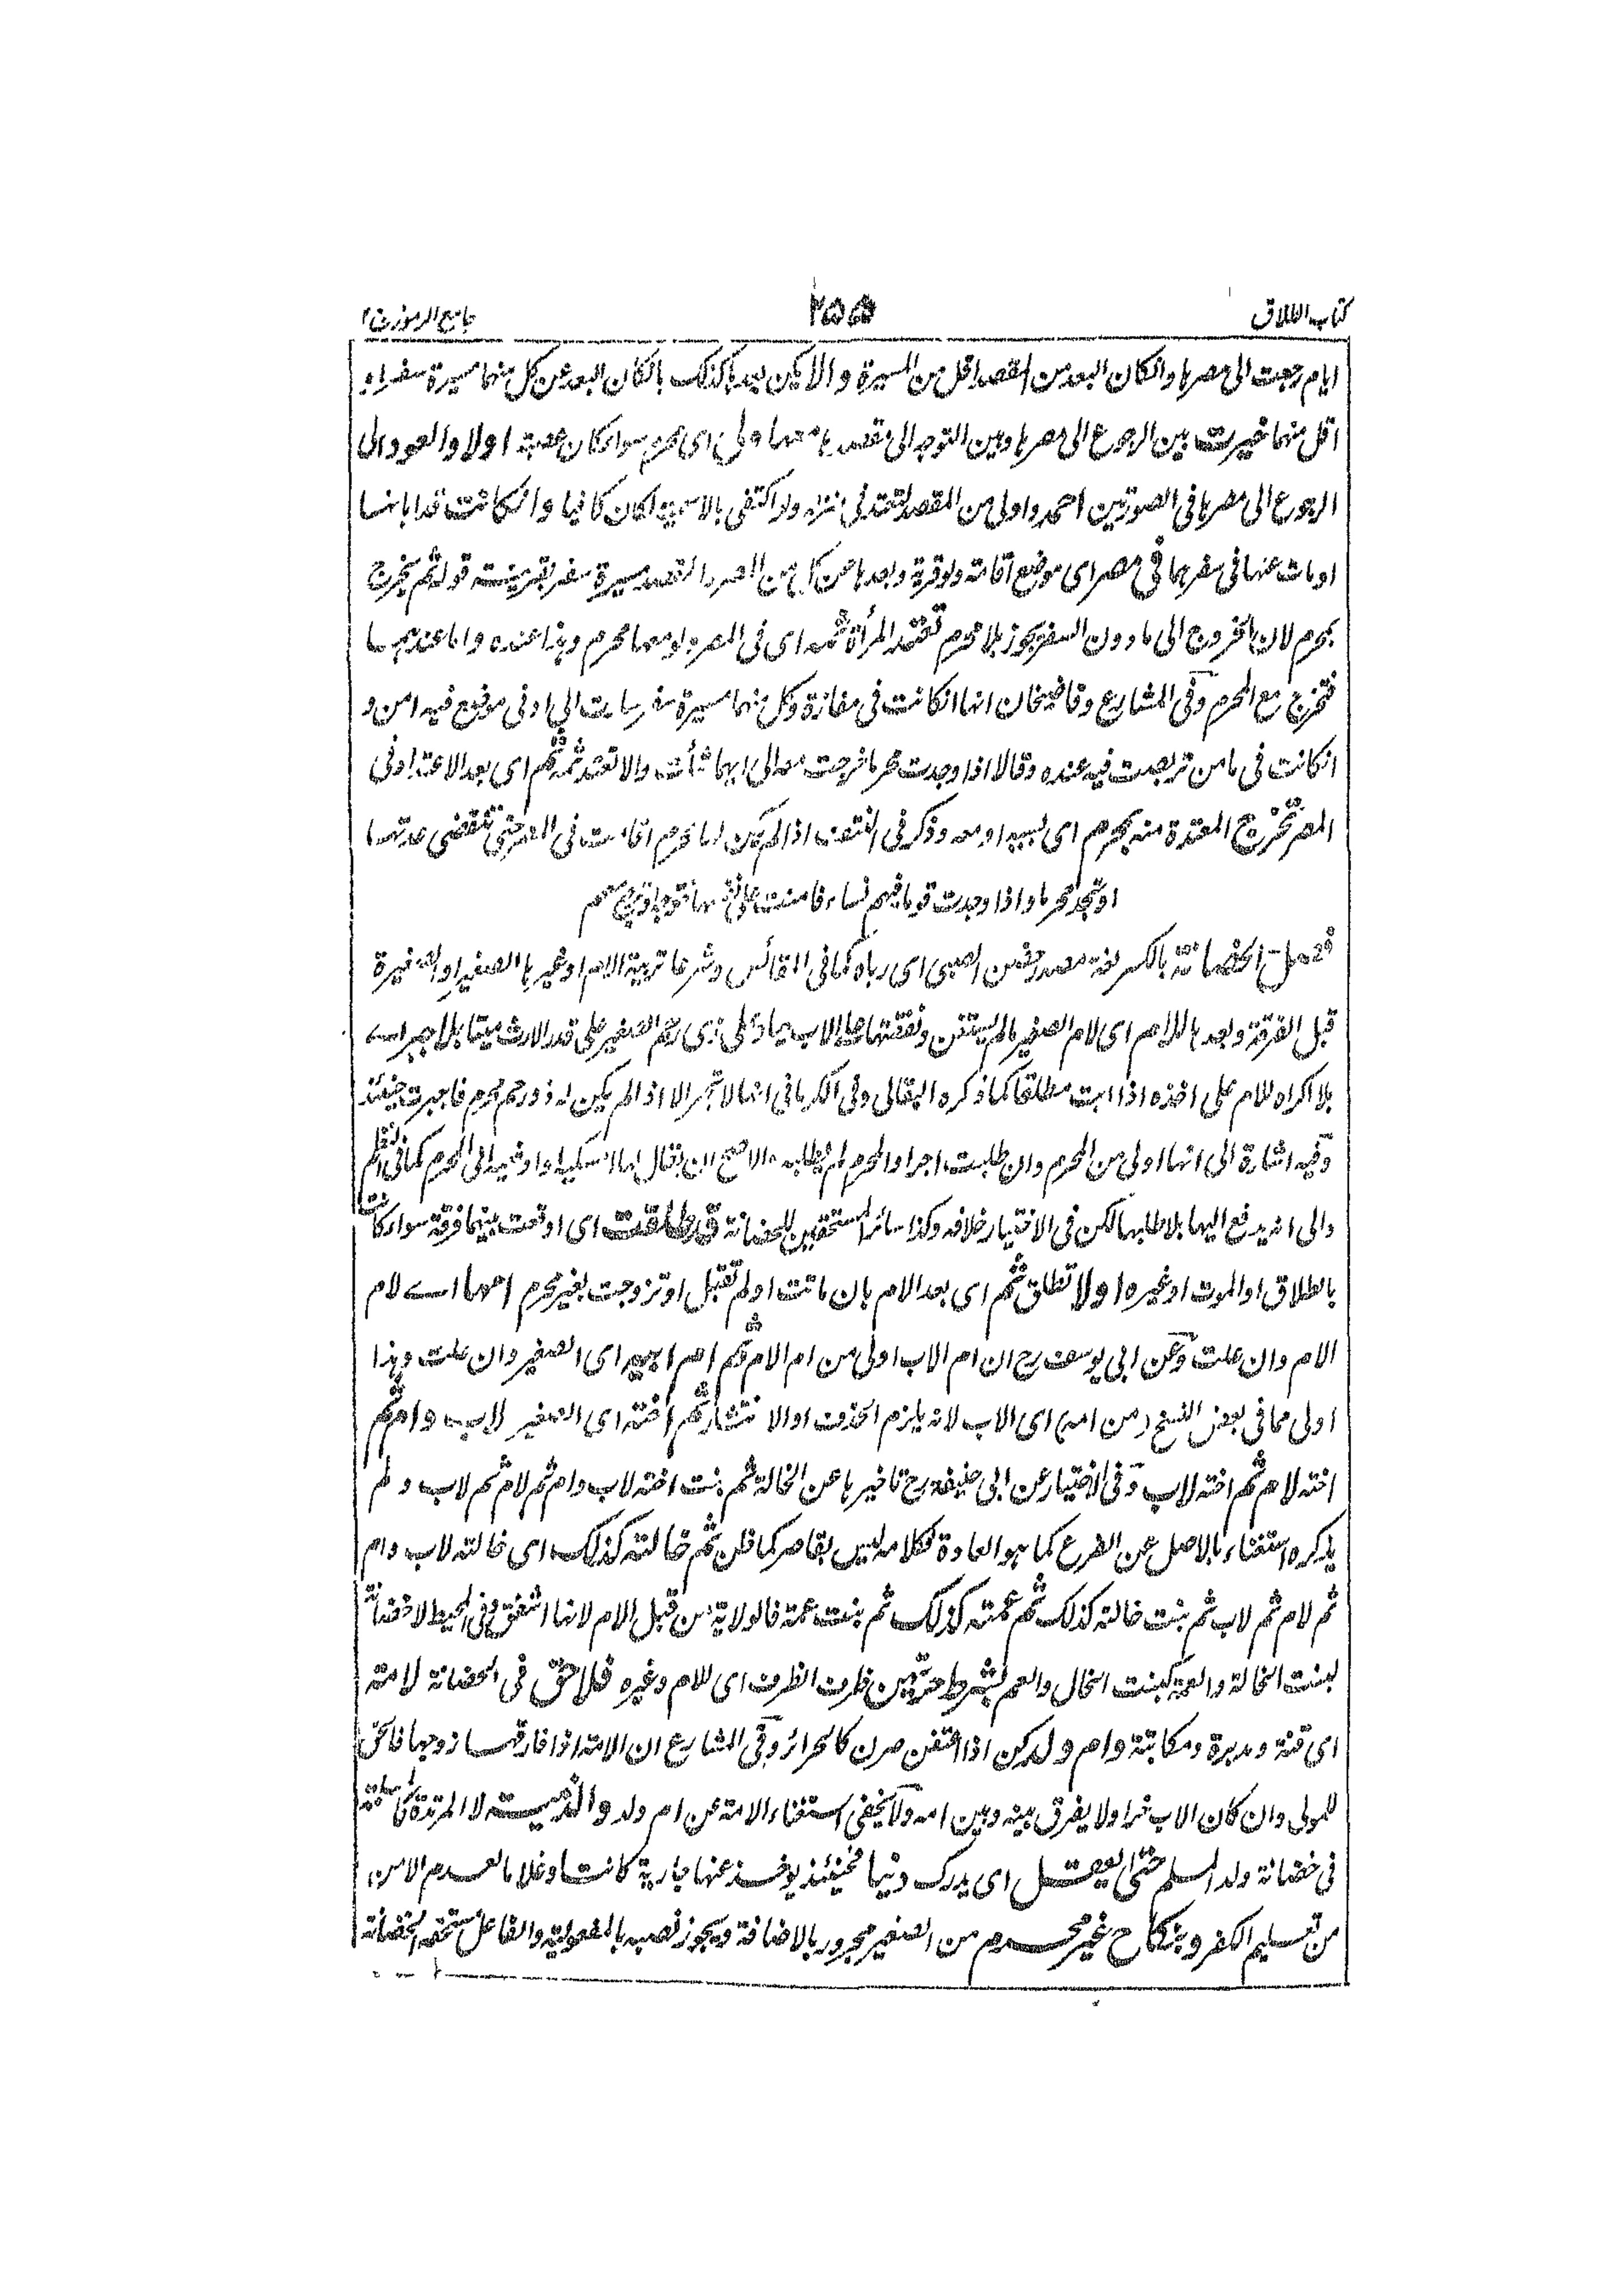 كتاب الطلاق
٢٥٥
جامع الرموز ج ٢
ايام رجعت الى مصرها وان كان البعد من المقصد اقل من المسيرة والا يكن بعدها كذلك بان كان البعد عن كل منهما مسيرة سفر او
اقل منهما خيرت بين الرجوع الى مصرها وبين التوجه الى مقصدها معها ولى اى محرم سواء كان عصبة اولا والعود اى
الرجوع الى مصرها فى الصورتين احمد واولى من المقصد لتعتد فى منزله ولو اكتفى بالاسمية لكان كافيا وان كانت قد ابانها
او مات عنها فى سفرهما فى مصر اى موضع اقامة ولو قرية وبعدها عن كل من المصر والمقصد مسيرة سفر بقرينة قوله ثم يخرج
بمحرم لان الخروج الى ما دون السفر يجوز بلا محرم تعتد المرأة ثمه اى فى المصر ولو معها محرم وهذا عنده واما عندهما
فتخرج مع المحرم وفى المشارع وقاضيخان انها ان كانت فى مفازة وكل منهما مسيرة سفر سارت الى ادنى موضع فيه امن و
ان كانت فى مامن تربصت فيه عنده وقالا اذا وجدت محرما خرجت معه الى ايهما شاءت والا تعتد ثمه ثم اى بعد الاعتداد فى
المصر تخرج المعتدة منه بمحرم اى بسببه او معه وذكر فى النتف اذا لم يكن لها محرم اقامت فى المصر حتى تنقضى عدتها
او تجد محرما واذا وجدت قوما فيهم نساء فامنت على نفسها تخرج معهم
فصل الحضانة بالكسر لغة مصدر حضن الصبى اى رباه كما فى المقائس وشرعا تربية الام او غيرها الصغير او الصغيرة
قبل الفرقة وبعدها للام اى لام الصغير ما لم يستغن ونفقتها على الاب حيا وعلى ذى رحم الصغير على قدر الارث ميتا بلا جبر اى
بلا اكراه للام على اخذه اذا ابت مطلقا كما ذكره البقالى وفى الكرمانى انها لا تجبر الا اذا لم يكن له ذو رحم محرم فاجبرت حينئذ
وفيه اشارة الى انها اولى من المحرم وان طلبت اجرا والمحرم لم يطلبه والاصح ان يقال لها امسكيه او ادفعيه الى المحرم كما فى النظم
والى انه يدفع اليها بلا طلبها لكن فى الاختيار خلافه وكذا سائر المستحقين للحضانة قد طلقت اى اوقعت بينهما فرقة سواء كانت
بالطلاق او الموت او غيره اولا تطلق ثم اى بعد الام بان ماتت او لم تقبل او تزوجت بغير محرم امها اى لام
الام وان علت وعن ابى يوسف رح ان ام الاب اولى من ام الام ثم ام ابيه اى الصغير وان علت وهذا
اولى مما فى بعض النسخ (من امه) اى الاب لانه يلزم الحذف او الانتشار ثم اخته اى الصغير لاب وام ثم
اخته لام ثم اخته لاب وفى الاختيار عن ابى حنيفة رح تاخيرها عن الخالة ثم بنت اخته لاب وام ثم لام ثم لاب ولم
يذكره استغناء بالاصل عن الفرع كما هو العادة فكلامه ليس بقاصر كما ظن ثم خالته كذلك اى خالته لاب وام
ثم لام ثم لاب ثم بنت خالته كذلك ثم عمته كذلك ثم بنت عمة فالولاية من قبل الام لانها اشفق وفى المحيط لا حضانة
لبنت الخالة والعمة كبنت الخال والعم بشرط حريتهن ظرف الظرف اى للام وغيره فلا حق فى الحضانة لامة
اى قنة ومدبرة ومكاتبة وام ولد لكن اذا اعتقن صرن كالحرائر وفى المشارع ان الامة اذا فارقها زوجها فالحق
للمولى وان كان الاب حرا ولا يفرق بينه وبين امه ولا يخفى استغناء الامة عن ام ولد والذمية لا المرتدة كالمسلمة
فى حضانة ولد المسلم حتى يعقل اى يدرك دينا فحينئذ يوخذ عنها جارية كانت او غلاما لعدم الامن
من تعليم الكفر وبنكاح غير محرم من الصغير مجرور بالاضافة ويجوز نصبه بالمفعولية والفاعل مستحقة الحضانة